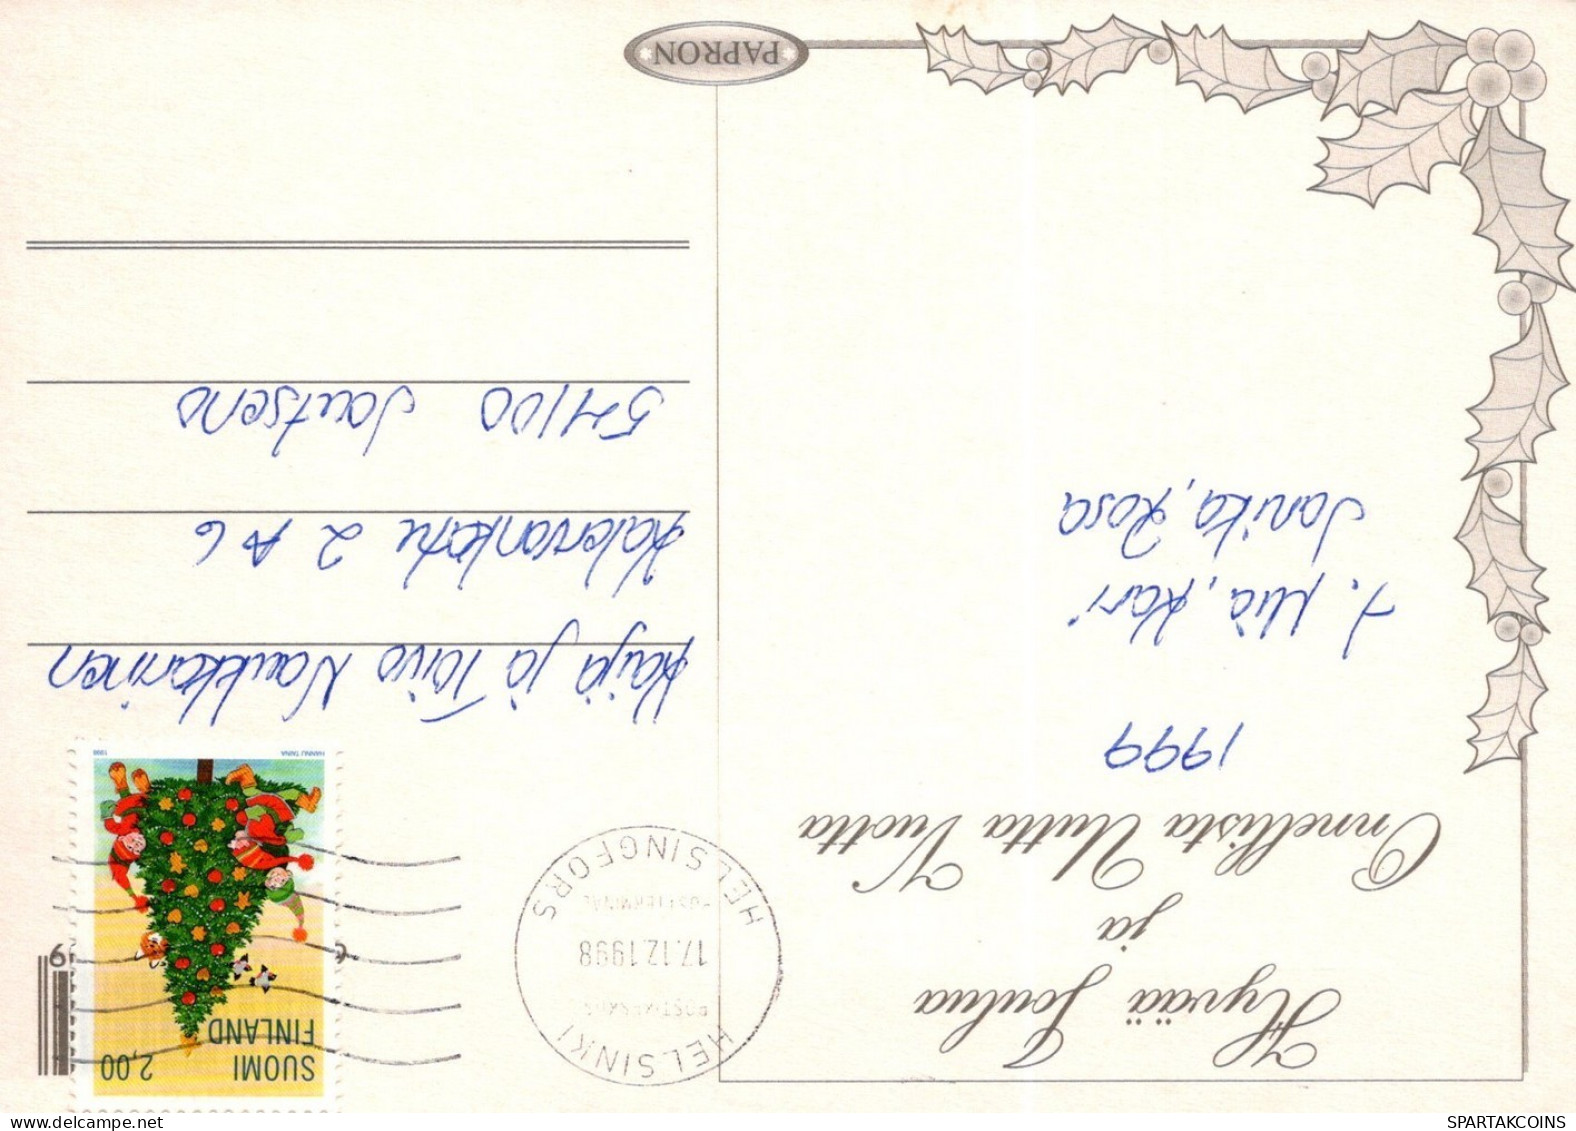 Hyvää Joulua
ja
Onnellista Uutta Vuotta
1999
T. Mia, Kari
Janika, Rosa
SUOMI
FINLAND
2,00
HANNU TAINA
1998
HELSINKI
17.12.1998
POSTTERMINAL
HELSINGFORS
Kaija ja Toivo Naukkarinen
Kalervonkatu 2 A 6
54100 Joutseno
PAPRON
SPARTAKCOINS
WWW.DELCAMPE.NET